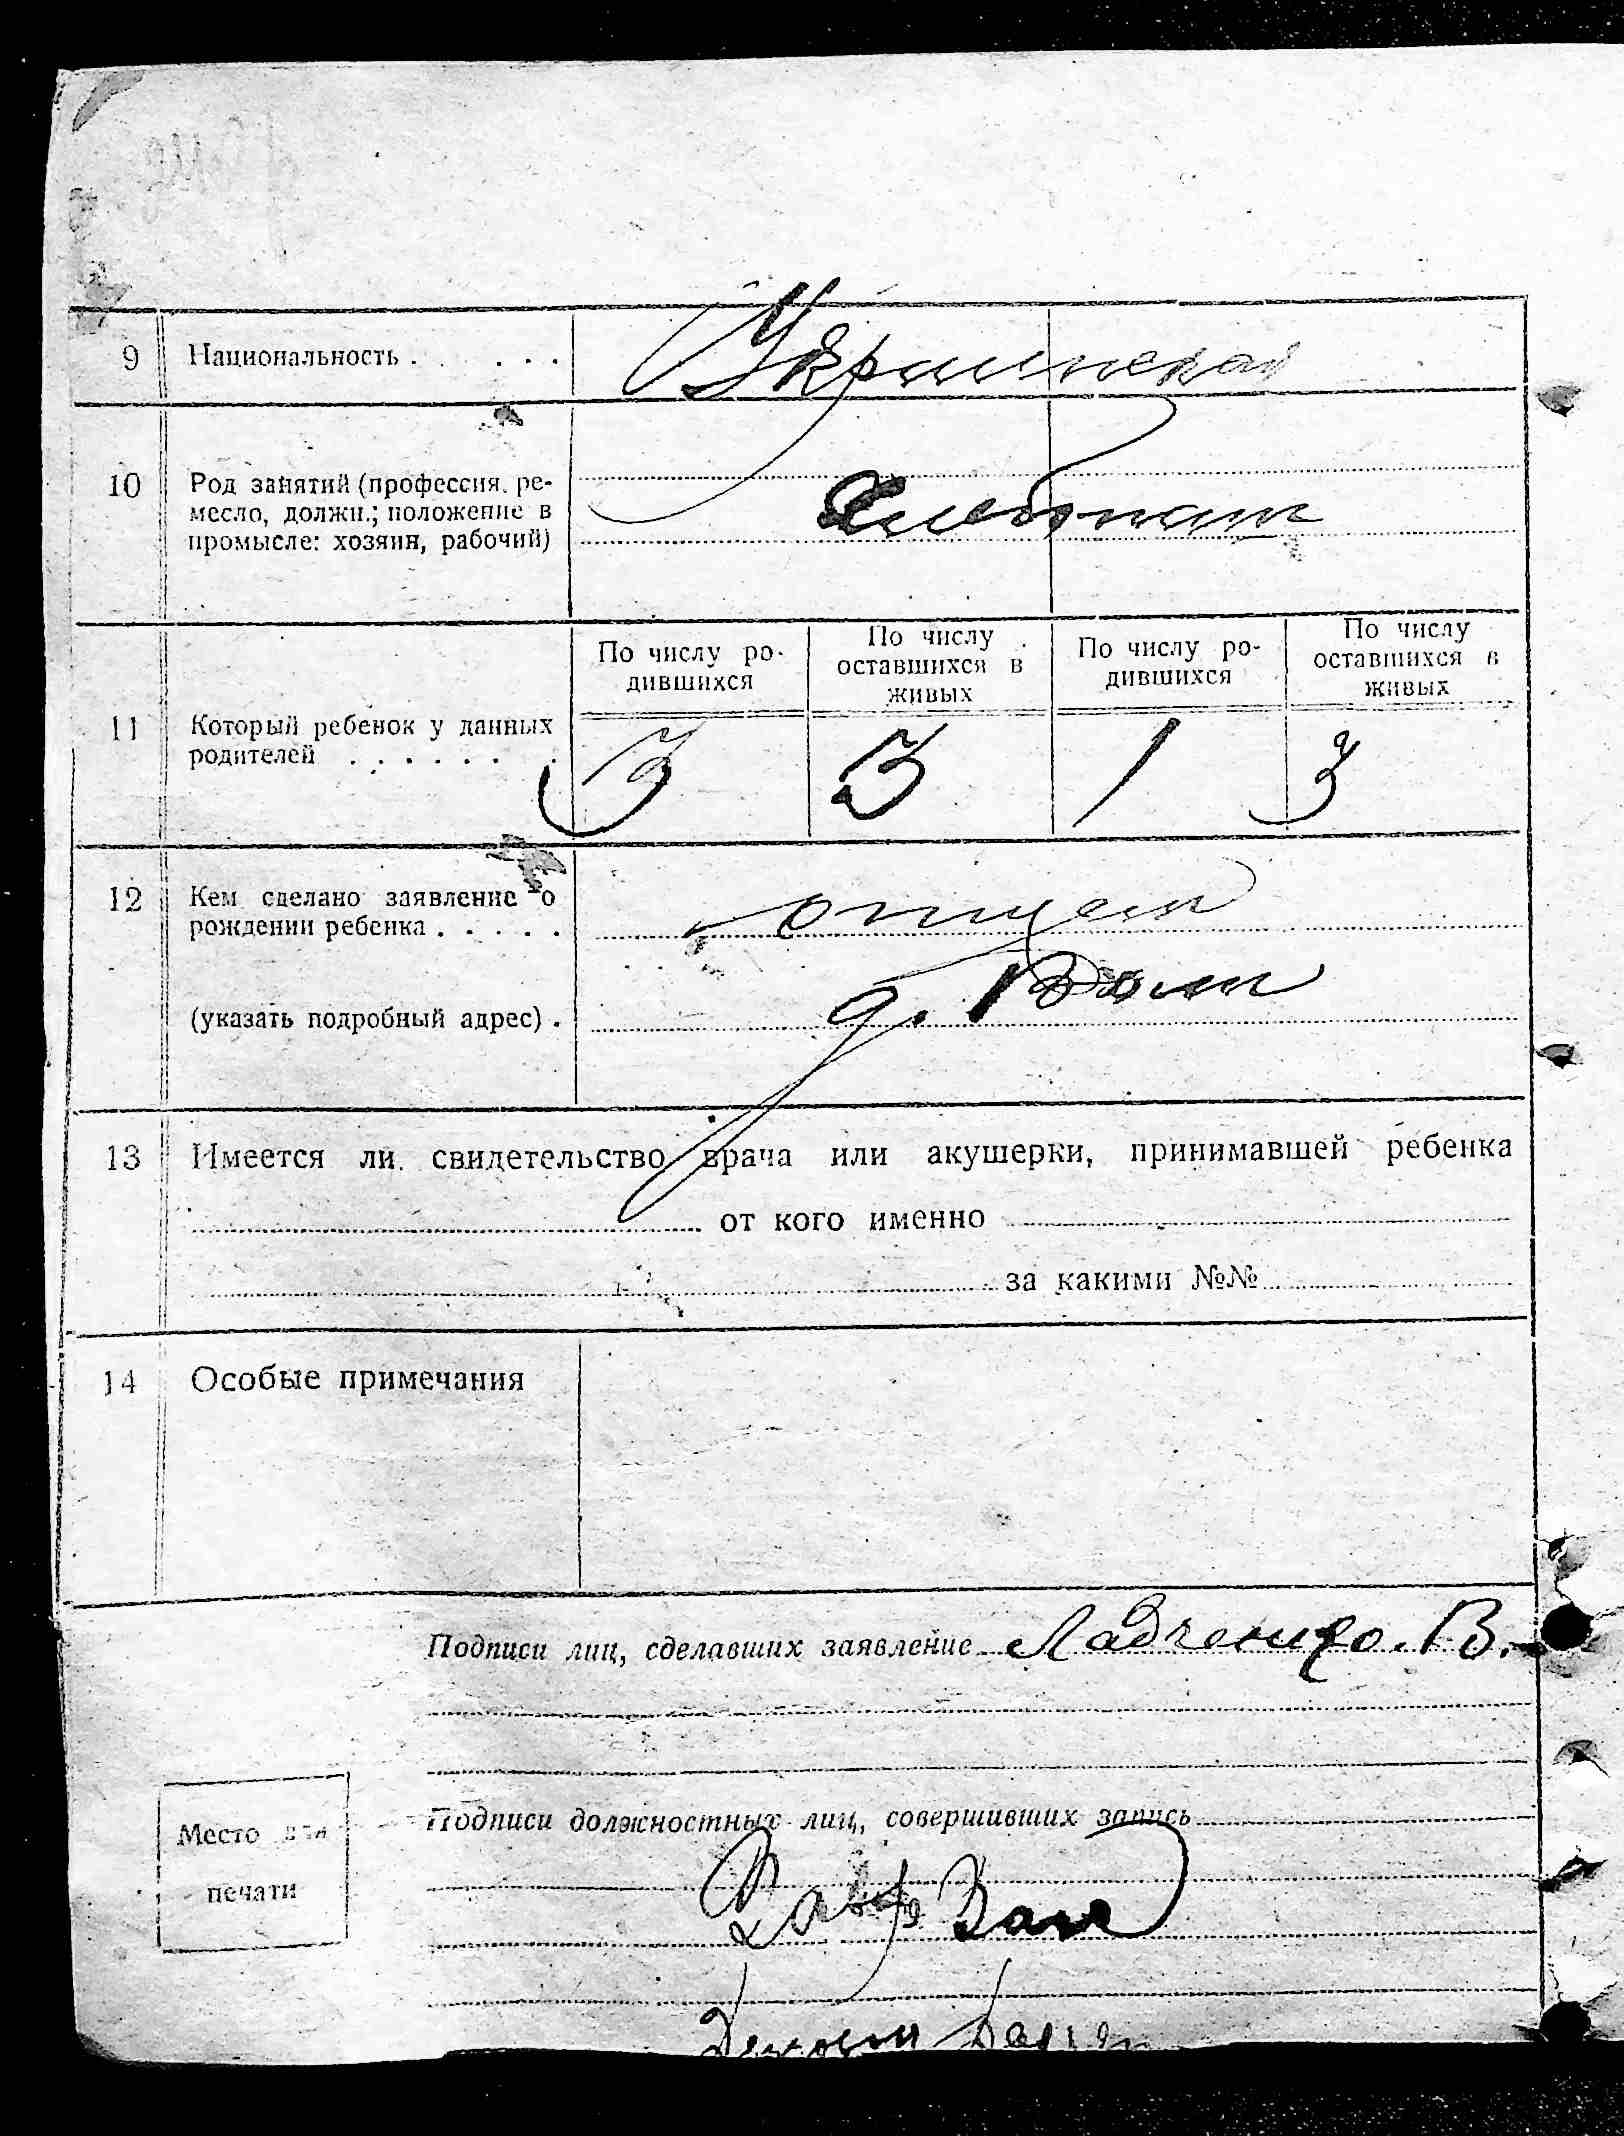 9 Национальность . . . . . . Украинская
10 Род занятий (профессия, ре-
месло, должн.; положение в
промысле: хозяин, рабочий)
Хлебопаш
По числу ро-
дившихся
По числу
оставшихся в
живых
По числу ро-
дившихся
По числу
оставшихся в
живых
11 Который ребенок у данных
родителей . . . . . . .
3 3 1 3
12 Кем сделано заявление о
рождении ребенка . . . . . отцем
(указать подробный адрес) . д.
13 Имеется ли свидетельство врача или акушерки, принимавшей ребенка
от кого именно
за какими №№
14 Особые примечания
Подписи лиц, сделавших заявление Ладченко. В.
Подписи должностных лиц, совершивших запись
Место для
печати